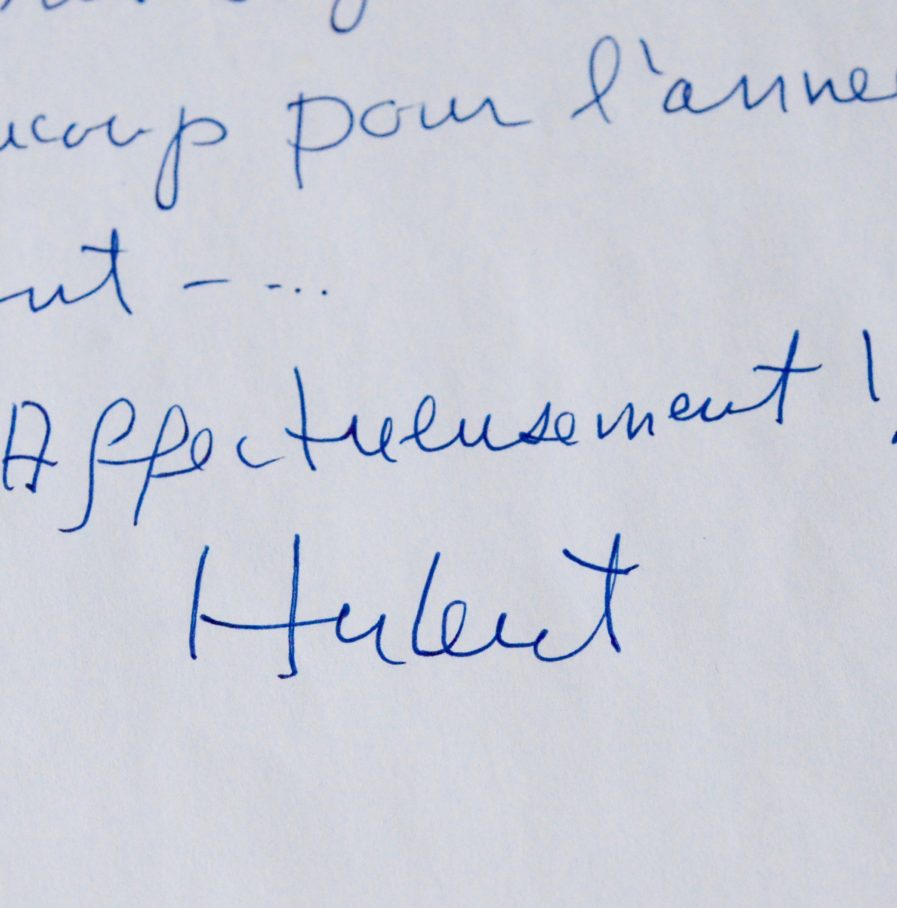 ucoup pour l'anné
ut - - ...
Affectueusement !
Hubert